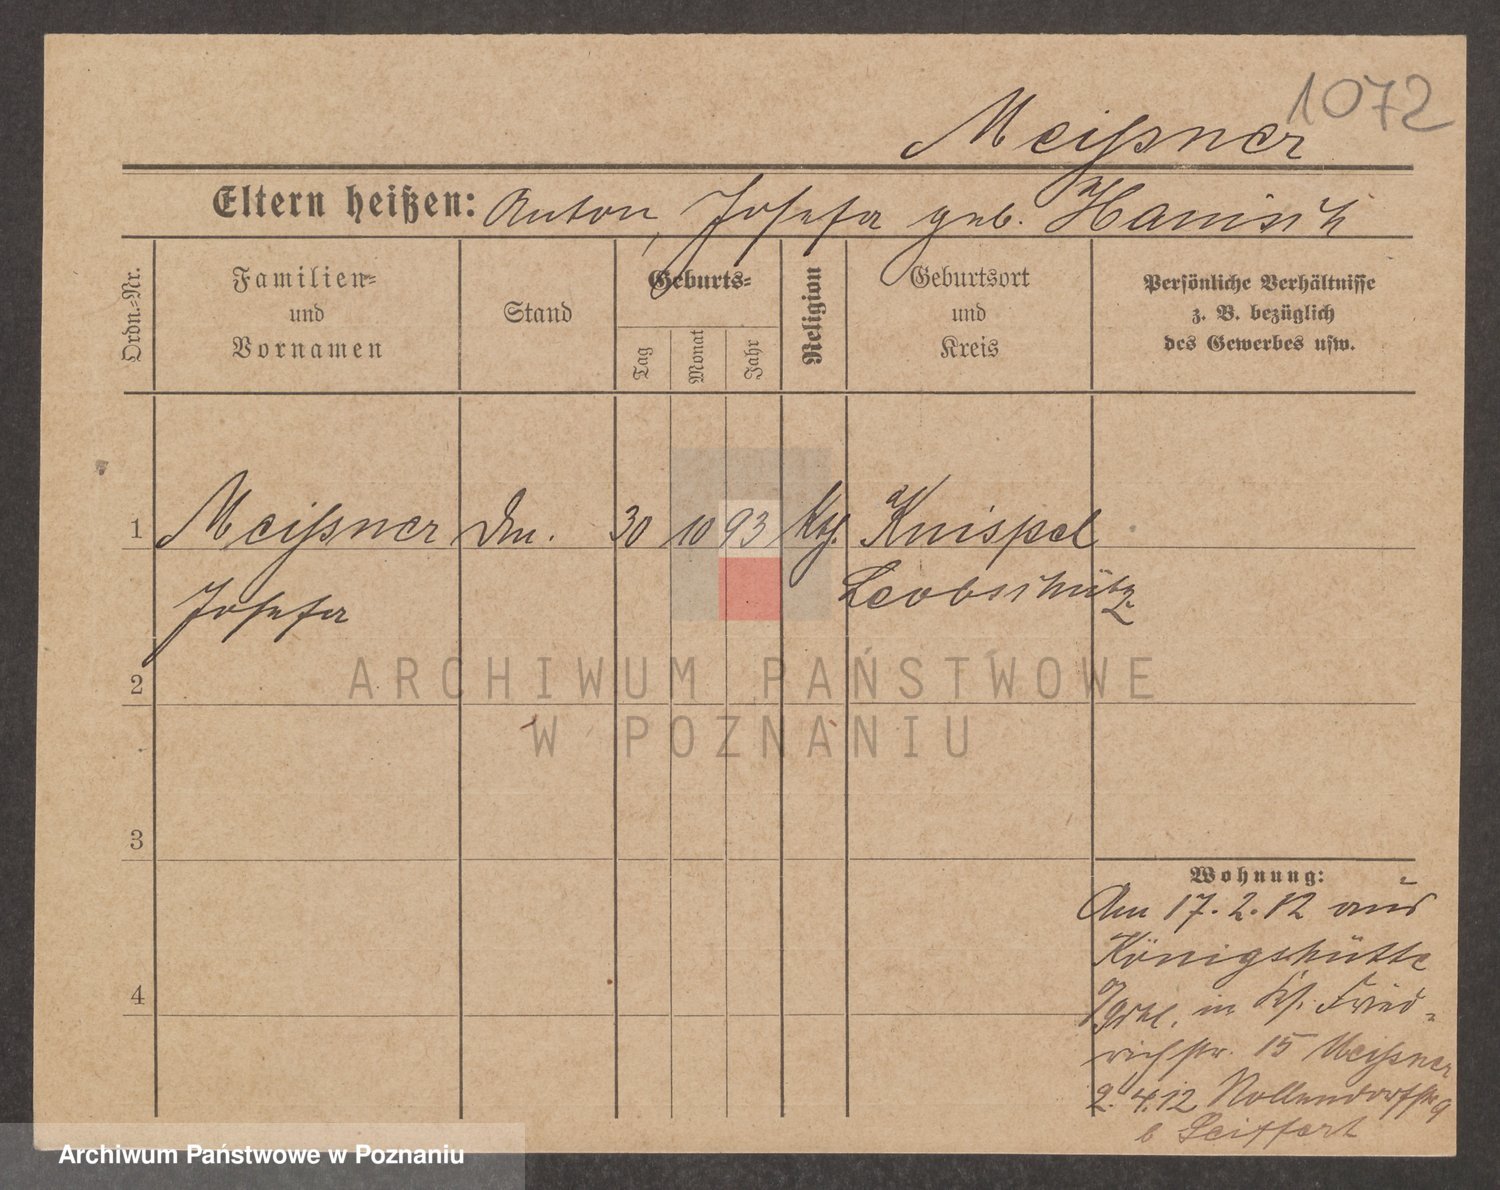 1072
Meißner
Eltern heißen: Anton, Josefa geb. Hanisch
Ordn.-Nr.
Familien-
und
Vornamen
Stand
Geburts-
Tag
Monat
Jahr
Religion
Geburtsort
und
Kreis
Persönliche Verhältnisse
z. B. bezüglich
des Gewerbes usw.
1 Meißner 30 10 93 Kth. Knispel
Josefa Leobschütz
2
ARCHIWUM PAŃSTWOWE
W POZNANIU
3
Wohnung:
Am 17.2.12 aus
Königshütte
in Fried-
richstr. 15 Meißner
2.4.12 Nollendorfstr 9
b Seiffert
4
Archiwum Państwowe w Poznaniu